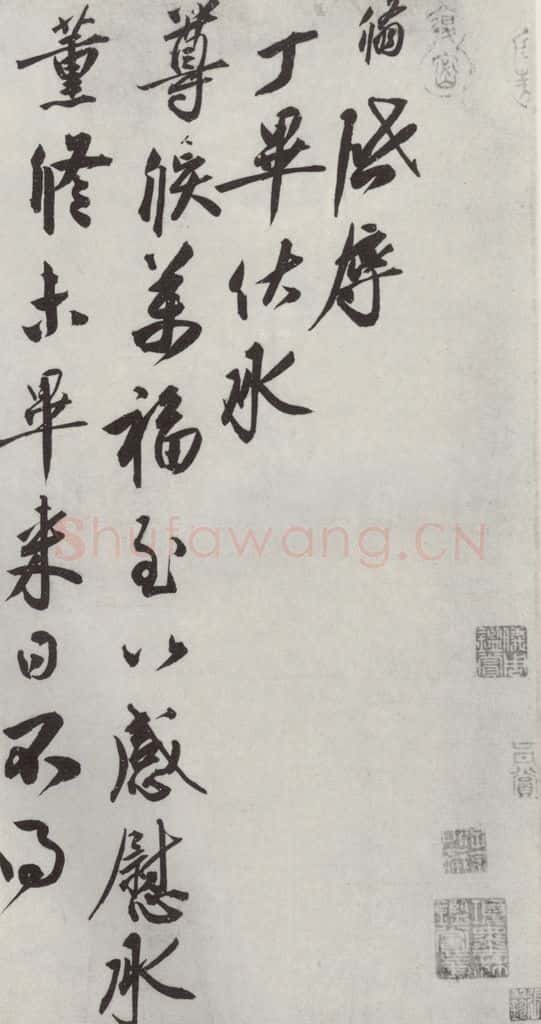 啟辱
丁畢伏承
尊候萬福至以感慰承
薰脩未畢來日不得
Shufawang.CN